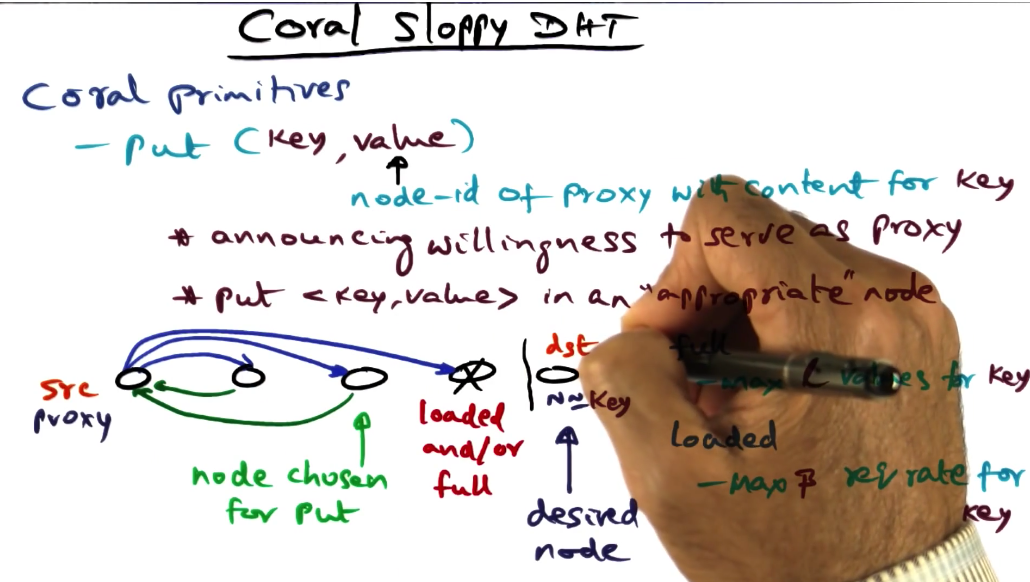 Coral Sloppy DHT
Coral primitives
- put (key, value)
node-id of proxy with content for key
* announcing willingness to serve as proxy
* put <key, value> in an "appropriate" node
src
proxy
node chosen
for put
loaded
and/or
full
dst
N ≈ key
desired
node
full
- max l values for key
loaded
- max β req rate for
key